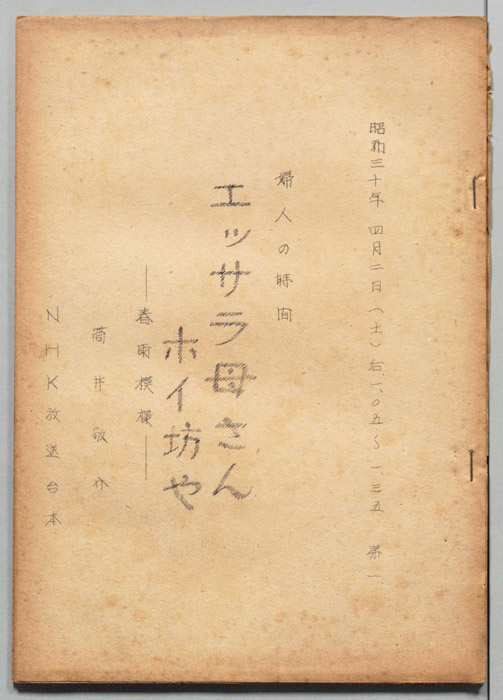 昭和三十年 四月二日(土)后一.〇五～一.三五 第一
婦人の時間
エッサラ母さん
ホイ坊や
―春雨模様―
筒井敬介
NHK放送台本